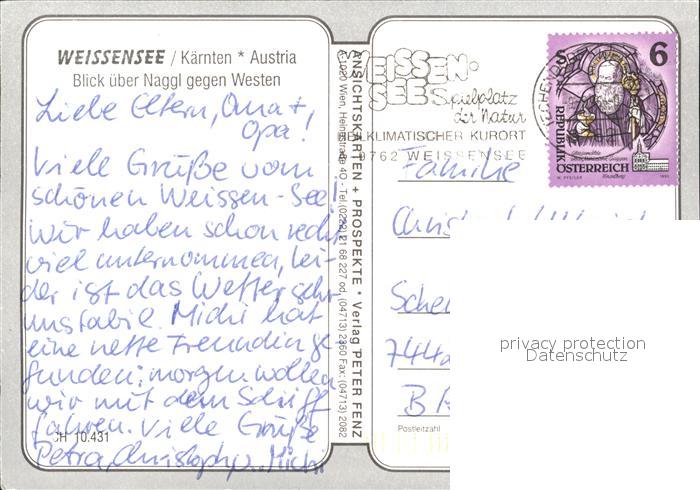 WEISSENSEE / Kärnten * Austria
Blick über Naggl gegen Westen
Liebe Eltern, Oma +,
Opa!
Viele Grüße vom
schönen Weissen-See!
Wir haben schon recht
viel unternommen, lei-
der ist das Wetter sehr
unstabil. Michi hat
eine nette Freundin ge-
funden; morgen wollen
wir mit dem Schiff
fahren. Viele Grüße
Petra, Christoph u. Michi
CH 10.431
ANSICHTSKARTEN + PROSPEKTE * Verlag PETER FENZ
A-1020 Wien, 40 - Tel. (0222) 21 68 227 od. (04713) 2360 Fax: (04713) 2082
WEISSEN-
SEE Spielplatz
der Natur
HEILKLIMATISCHER KURORT
9762 WEISSENSEE
6
REPUBLIK
ÖSTERREICH
Familie
744
Postleitzahl
privacy protection
Datenschutz